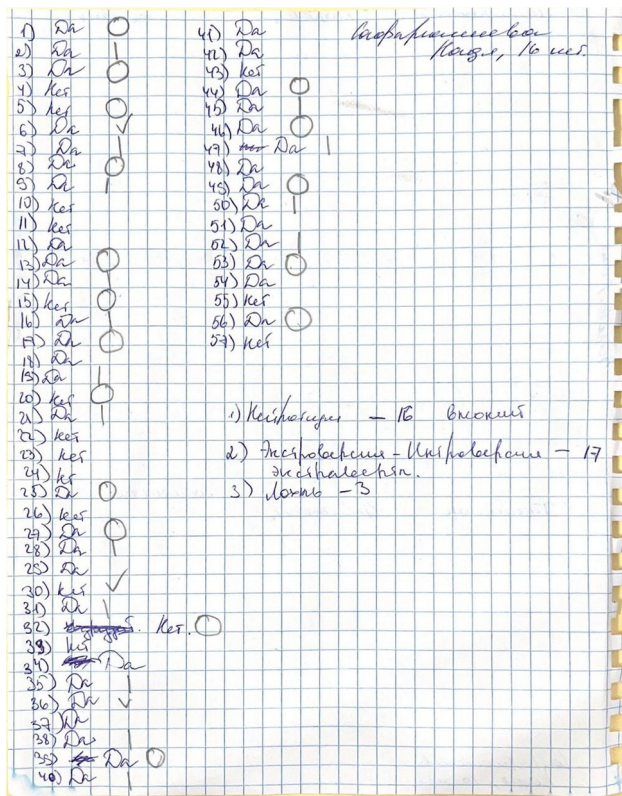 1) Да
2) Да
3) Да
4) Нет
5) Нет
6) Да
7) Да
8) Да
9) Да
10) Нет
11) Нет
12) Да
13) Да
14) Да
15) Нет
16) Да
17) Да
18) Да
19) Да
20) Нет
21) Да
22) Нет
23) Нет
24) Нет
25) Да
26) Нет
27) Да
28) Да
29) Да
30) Нет
31) Да
32) Нет.
33) Нет
34) Да
35) Да
36) Да
37) Да
38) Да
39) Да
40) Да
41) Да
42) Да
43) Нет
44) Да
45) Да
46) Да
47) Да
48) Да
49) Да
50) Да
51) Да
52) Да
53) Да
54) Да
55) Нет
56) Да
57) Нет
Надя, 16 лет.
1) Нейротизм — 16 высокий
2) Экстраверсия - Интроверсия — 17
3) Ложь — 3